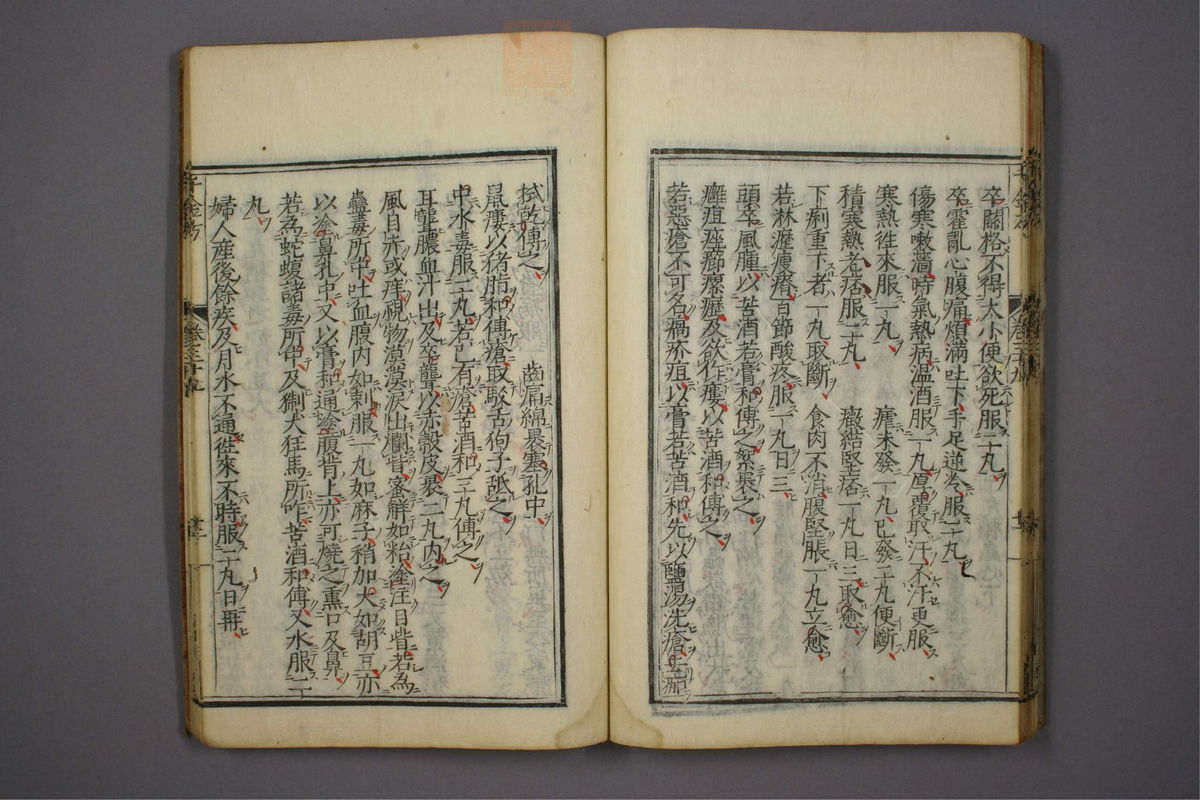 卒關格不得大小便欲死服二丸
卒霍亂心腹痛煩滿吐下手足逆冷服二丸
傷寒嗽嗇時氣熱病温酒服一丸厚覆取汗不汗更服
寒熱徃來服一丸 瘧未發一丸已發二丸便斷
積寒熱老痞服二丸 癥結堅痞一丸日三取愈
下痢重下者一丸取斷 食肉不消腹堅脹一丸立愈
若淋瀝瘦瘠百節酸疼服一丸日三
頭卒風腫以苦酒若膏和傅之絮褁之
癰疽痤癤瘰癧及欲作瘻以苦酒和傅之
若惡瘡不可名瘑疥疽以膏若苦酒和先以鹽湯洗瘡去痂
拭乾傅之 齒痛綿褁塞孔中
鼠瘻以猪脂和傅瘡取駮舌狗子䑛之
中水毒服二丸若已有瘡苦酒和三丸傅之
耳聾膿血汁出及卒聾以赤縠皮褁二丸内之
風目赤或痒視物漠漠淚出爛眥蜜解如粘塗注目眥若為
蠱毒所中吐血腹内如刺服一丸如麻子稍加大如胡豆亦
以塗鼻孔中又以膏和通塗腹背上亦可燒之熏口及鼻
若為蛇蝮諸毒所中及猘犬狂馬所咋苦酒和傅又水服二
丸
婦人産後餘疾及月水不通徃來不時服二丸日再
千金方
卷三十九